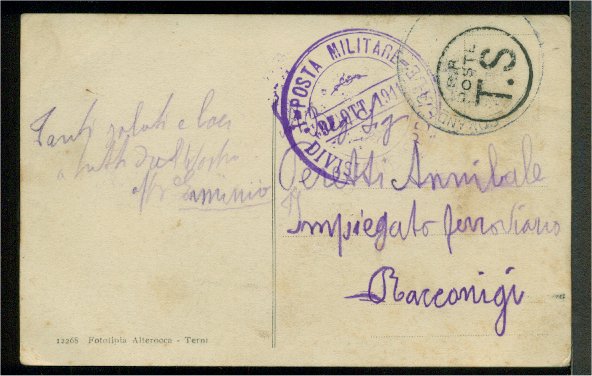 Tanti saluti e baci
a tutti dal Vostro
POSTA MILITARE
DIVIS
T.S
POSTE
Peretti Annibale
Impiegato ferroviario
Racconigi
12268 Fototipia Alterocca - Terni